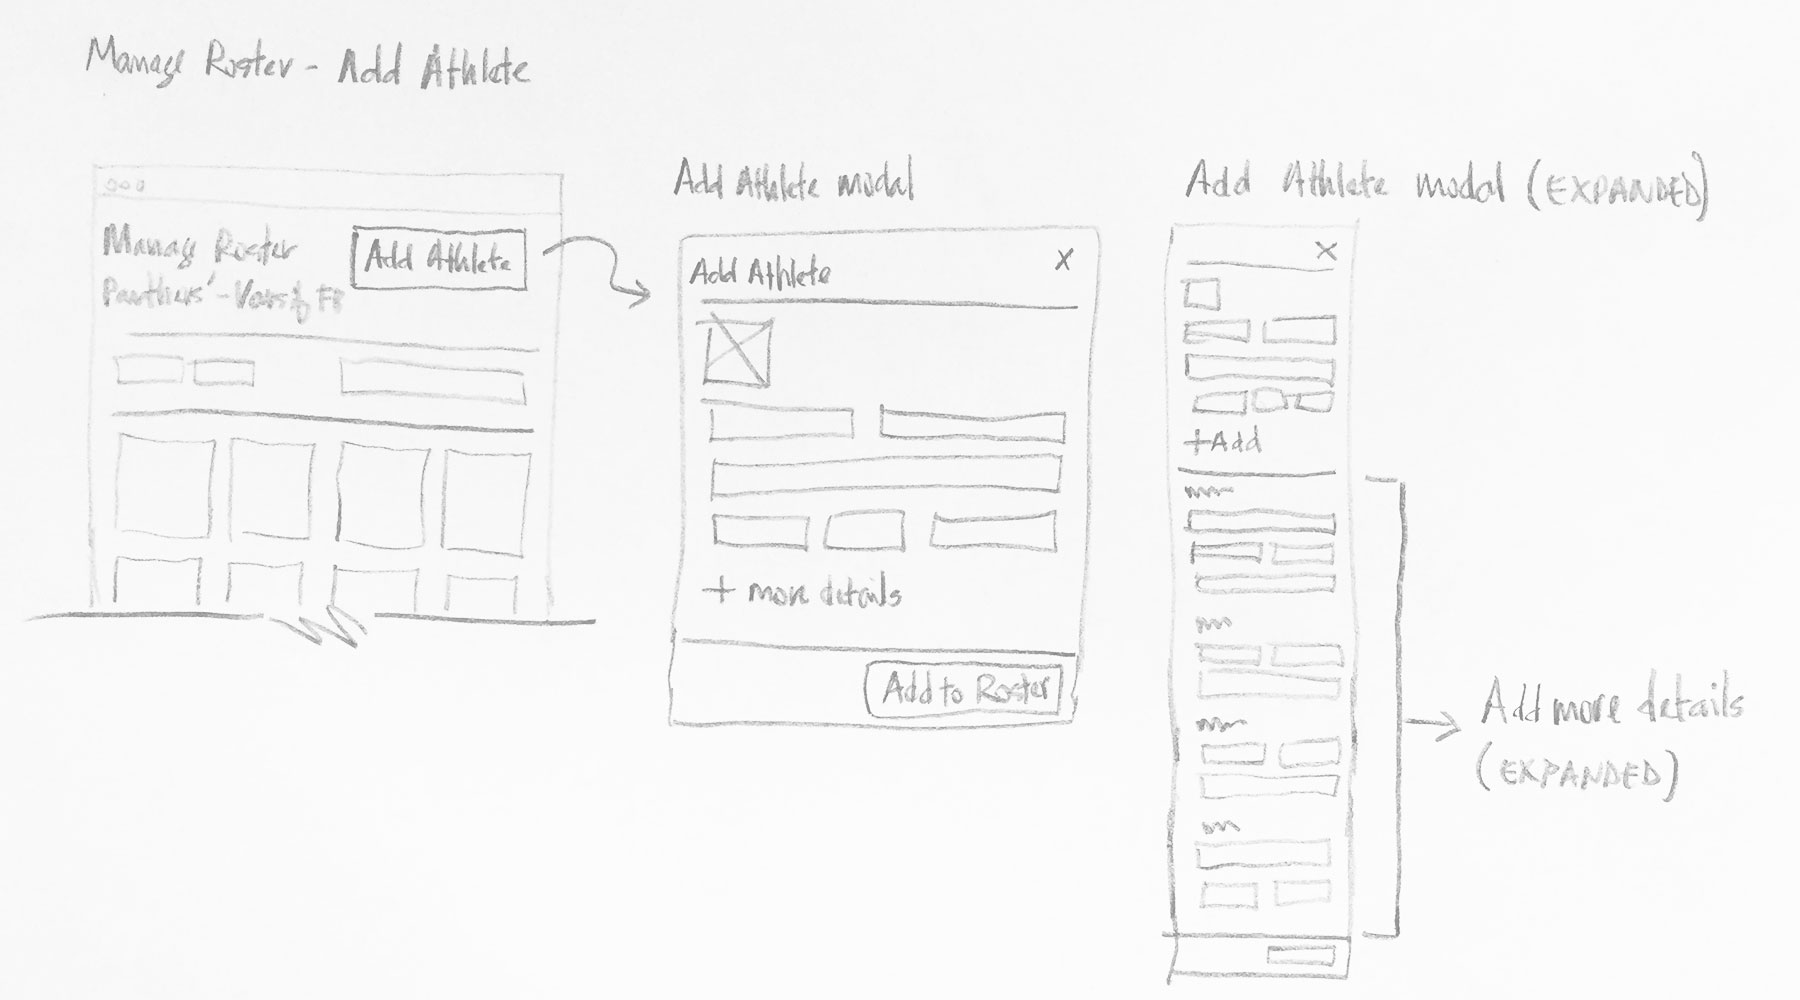 Manage Roster - Add Athlete
Manage Roster
Panthers' - Varsity FB
Add Athlete
Add Athlete modal
Add Athlete
X
+ more details
Add to Roster
Add Athlete modal (EXPANDED)
X
+Add
Add more details
(EXPANDED)